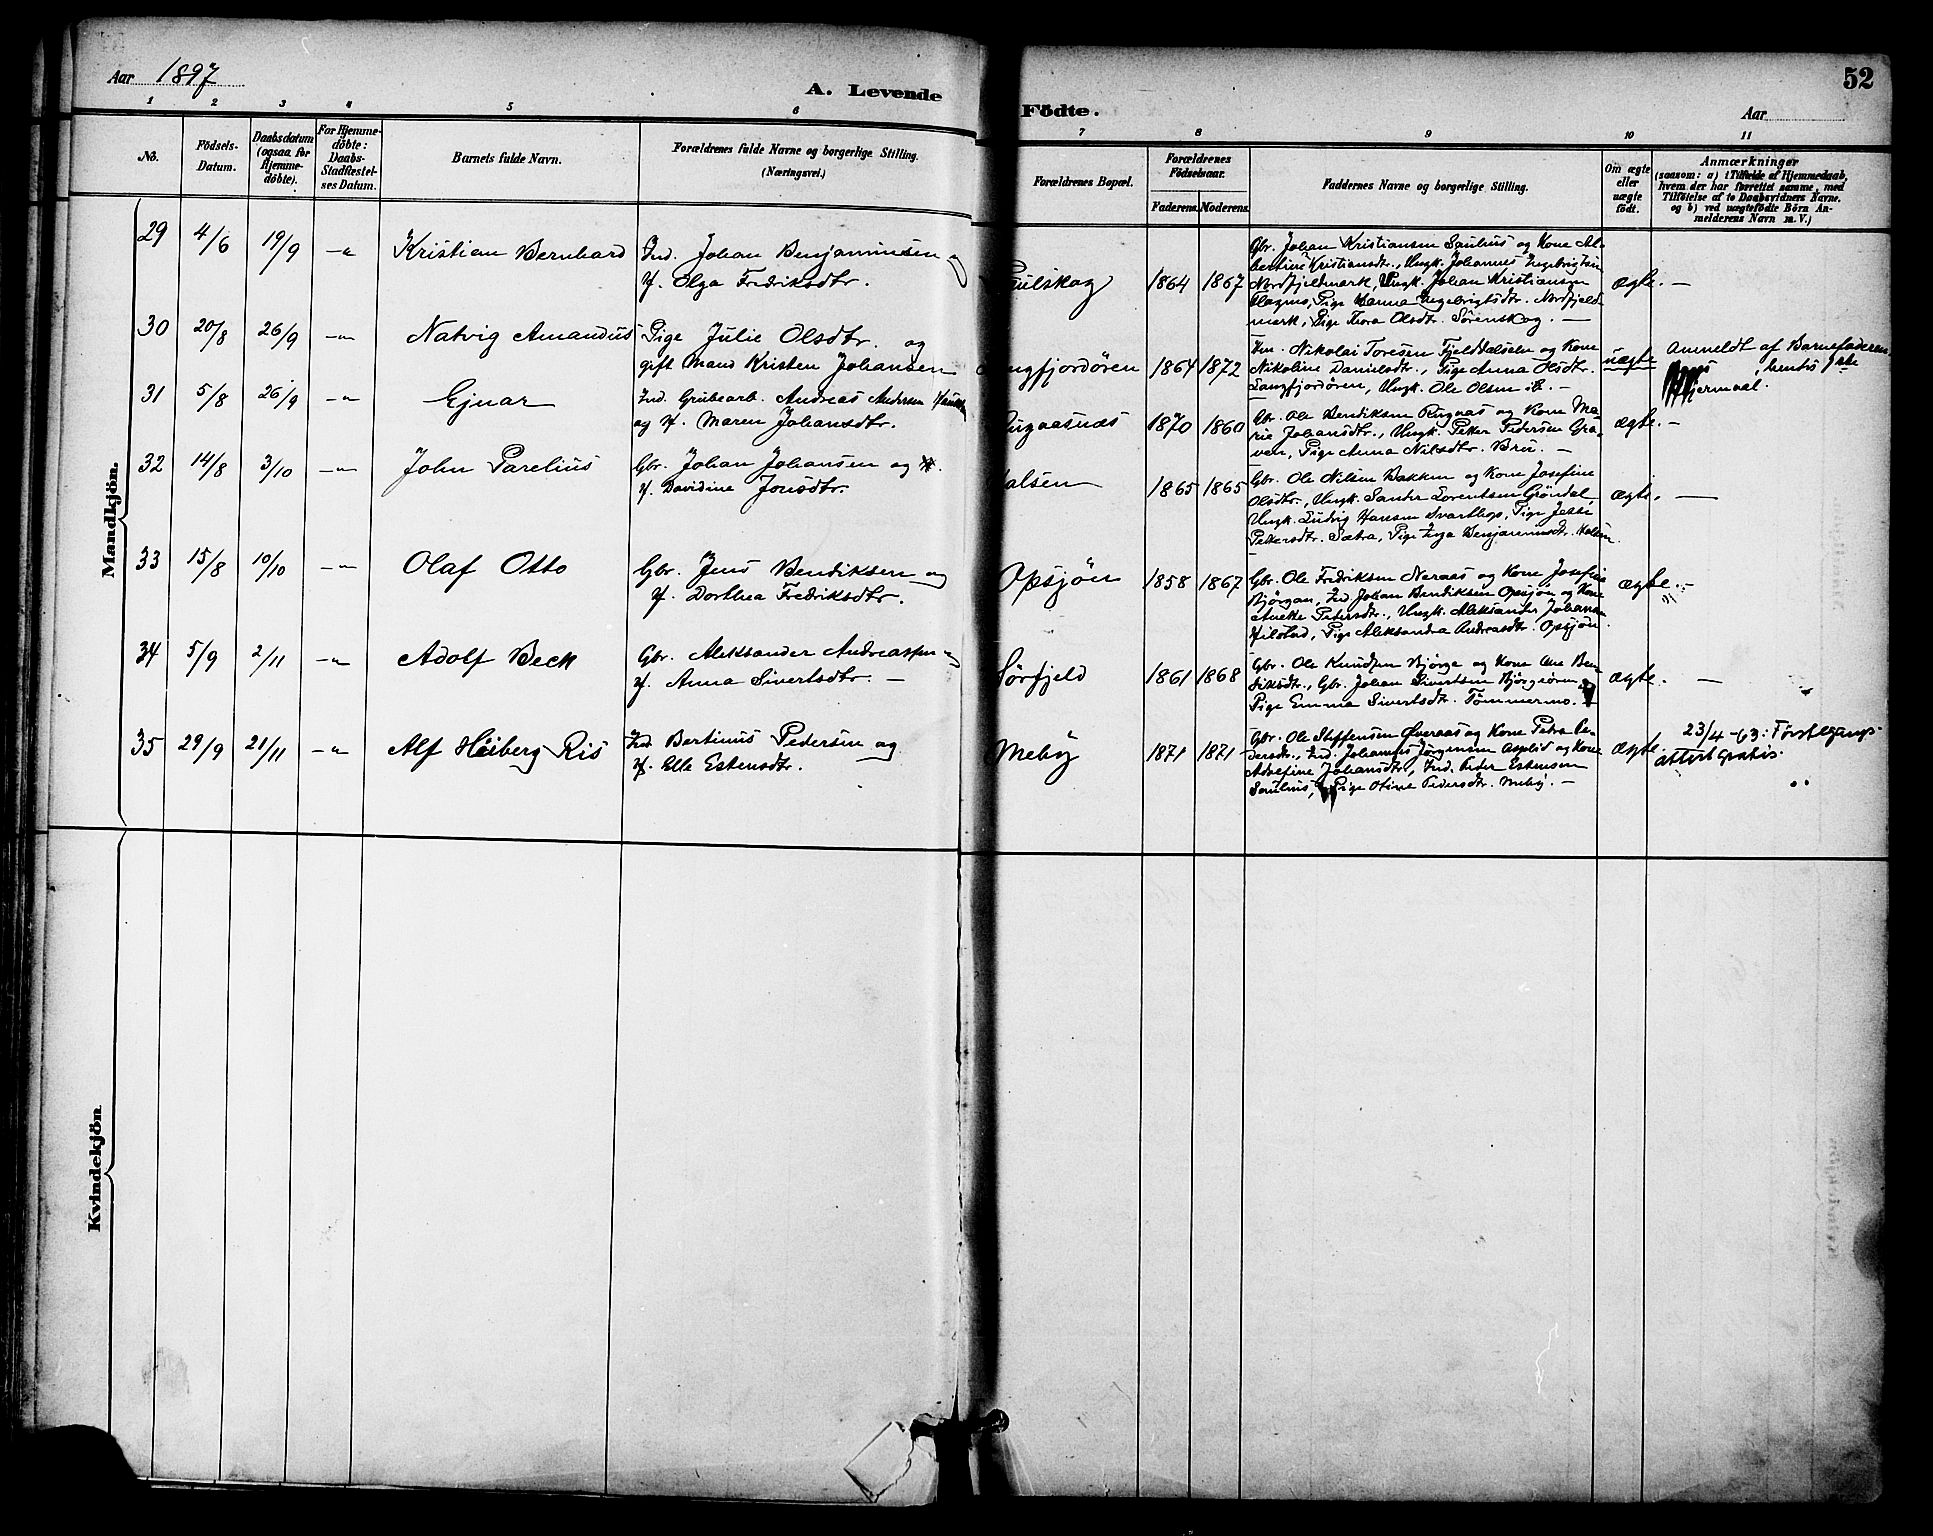 Aar 1897
A. Levende
Födte.
Aar
52
1 2 3 4 5 6 7 8 9 10 11
No.
Födsels-
Datum.
Daabsdatum
(ogsaa for
Hjemme-
döbte).
For Hjemme-
döbte:
Daabs-
Stadfæstel-
ses Datum.
Barnets fulde Navn.
Forældrenes fulde Navne og borgerlige Stilling.
(Næringsvei.)
Forældrenes Bopæl.
Forældrenes
Födselsaar.
Faderens. Moderens.
Faddernes Navne og borgerlige Stilling.
Om ægte
eller
uægte
födt.
Anmærkninger
(saasom: a) i Tilfælde af Hjemmedaab,
hvem der har forrettet samme, med
Tilföielse af to Daabsvidners Navne.
og b) ved uægtefödte Börn An-
melderens Navn m. V.)
Mandkjön.
29 4/6 19/9 -"- Kristian Bernhard
Ind. Johan Benjaminsen og
H. Olga Fredriksdtr.
1864 1867
Gbr. Johan Kristiansen Saulius og Kone Al-
bertine Kristiansdtr., Ungk. Johannes Ingebrigtsen
Nordfjeldmark, Ungk. Johan Kristiansen
Pige Hanna Ingebrigtsdtr. Nordfjeld-
mark, Pige Thora Olsdtr. Sörenskog. —
ægte. —
30 20/8 26/9 -"- Natvig Amandus
Pige Julie Olsdtr. og
gift Mand Kristen Johansen
ngfjordören 1864 1872
Nikolai Toresen Fjelddalselv og Kone
Nikoline Danielsdtr., Pige Anna Olsdtr.
Langfjordören, Ungk. Ole Olsen ib. —
uægte
Anmeldt af Barnefaderen,
31 5/8 26/9 -"- Ejnar
Ind. Grubearb. Andreas Andersen
og H. Maren Johansdtr.
ugaasnæs 1870 1860
Gbr. Ole Bendiksen Rugaas og Kone Ma-
rie Johansdtr., Ungk. Petter Pedersen Gra-
ven, Pige Anna Nilsdtr. Bru. —
ægte. —
32 14/8 3/10 -"- John Parelius
Gbr. Johan Johansen og
H. Davidine Jonsdtr.
alsen 1865 1865
Gbr. Ole Nilsen Bakken og Kone Josefine
Olsdtr., Ungk. Sander Lorentsen Gröndal,
Ungk. Ludvig Hansen Svarthop, Pige Jetti
Pettersdtr. Sætra, Pige Inga Benjaminsdtr. Halsen.
ægte. —
33 15/8 10/10 -"- Olaf Otto
Gbr. Jens Bendiksen og
H. Dorthea Fredriksdtr.
Opsjön 1858 1867
Gbr. Ole Fredriksen Neraas og Kone Josefine
Björgan, Ind. Johan Bendiksen Opsjön og Kone
Anette Petersdtr., Ungk. Aleksander Johansen
Hilstad, Pige Aleksandra Andreasdtr. Opsjön.
ægte. —
34 5/9 2/11 -"- Adolf Beck
Gbr. Aleksander Andreassen og
H. Anna Sivertsdtr. —
Sörfjeld 1861 1868
Gbr. Ole Knudsen Björge og Kone Ane Ben-
diksdtr., Gbr. Johan Sivertsen Björgören,
Pige Emma Sivertsdtr. Tömmermo. —
ægte. —
35 29/9 21/11 -"- Alf Heiberg Ris
Ind. Bertinus Pedersen og
H. Elle Estensdtr.
Meby 1871 1871
Gbr. Ole Steffensen Överaas og Kone Petra Pe-
dersdtr., Ind. Johannes Jörgensen Asplid og Kone
Adolfine Johansdtr., Ind. Peder Estensen
Saulius, Pige Otine Pedersdtr. Meby. —
ægte.
23/4-63: Förstegangs-
attest gratis.
Kvindekjön.